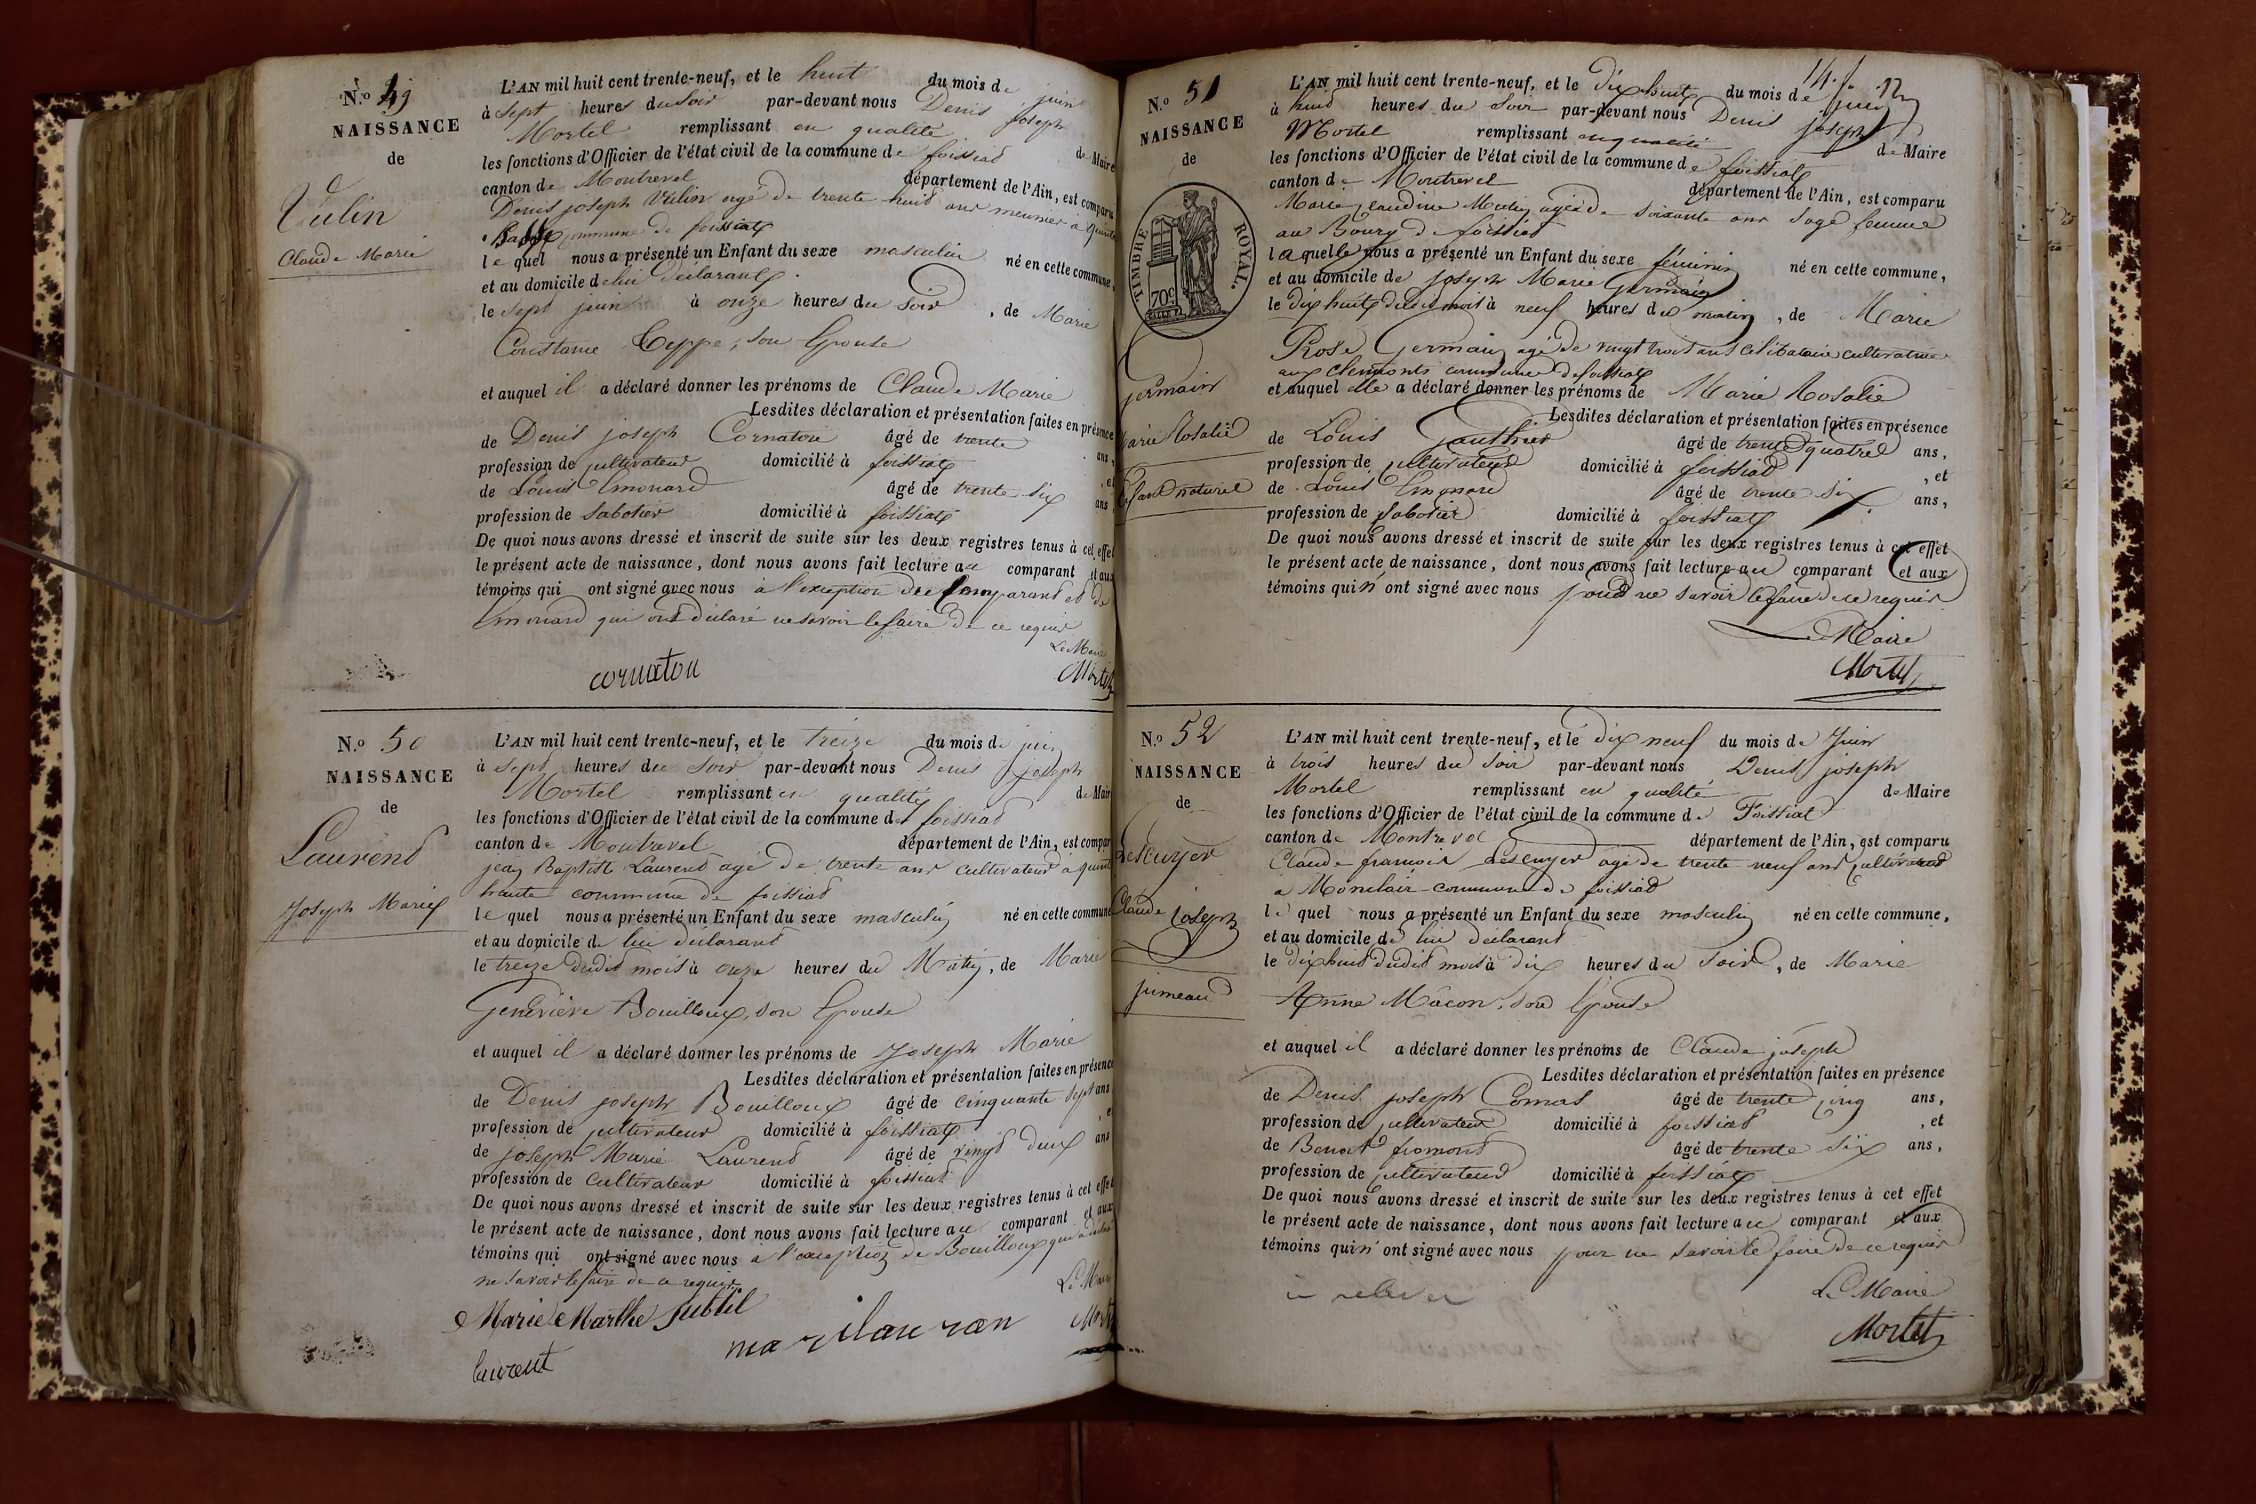 N.o 49
NAISSANCE
de
Vulin
Claude Marie
L'AN mil huit cent trente-neuf, et le huit du mois de juin
à sept heures du soir par-devant nous Denis joseph
Mortel remplissant en qualité de Maire
les fonctions d'Officier de l'état civil de la commune de foissiat
canton de Montrevel département de l'Ain, est comparu
Denis joseph Vulin agé de trente huit ans meunier à
commune de foissiat
lequel nous a présenté un Enfant du sexe masculin né en cette commune,
et au domicile de lui déclarant
le sept juin à onze heures du soir, de Marie
Constance Teppe, son Epouse
et auquel il a déclaré donner les prénoms de Claude Marie
Lesdites déclaration et présentation faites en présence
de Denis joseph Cornaton âgé de trente ans,
profession de cultivateur domicilié à foissiat, et
de Louis Emonard âgé de trente six ans
profession de sabotier domicilié à foissiat
De quoi nous avons dressé et inscrit de suite sur les deux registres tenus à cet effet
le présent acte de naissance, dont nous avons fait lecture au comparant et aux
témoins qui ont signé avec nous à l'exception du comparant et de
Emonard qui ont déclaré ne savoir le faire de ce requis
Le Maire
cornaton Mortel
N.o 50
NAISSANCE
de
Laurend
Joseph Marie
L'AN mil huit cent trente-neuf, et le treize du mois de juin
à sept heures du soir par-devant nous Denis joseph
Mortel remplissant en qualité de Maire
les fonctions d'Officier de l'état civil de la commune de foissiat
canton de Montrevel département de l'Ain, est comparu
jean Baptiste Laurend agé de trente ans cultivateur à
haute commune de foissiat
lequel nous a présenté un Enfant du sexe masculin né en cette commune
et au domicile de lui déclarant
le treize dudit mois à onze heures du Matin, de Marie
Geneviève Bouilloux, son Epouse
et auquel il a déclaré donner les prénoms de Joseph Marie
Lesdites déclaration et présentation faites en présence
de Denis joseph Bouilloux âgé de cinquante sept ans
profession de cultivateur domicilié à foissiat, et
de joseph Marie Laurend âgé de vingt deux ans
profession de cultivateur domicilié à foissiat
De quoi nous avons dressé et inscrit de suite sur les deux registres tenus à cet effet
le présent acte de naissance, dont nous avons fait lecture au comparant et aux
témoins qui ont signé avec nous à l'exception de Bouilloux qui a déclaré
ne savoir le faire de ce requis
Le Maire
Marie Marthe Subtil
Mortel
laurent
14. f. 12
N.o 51
NAISSANCE
de
TIMBRE ROYAL.
70c
germain
Marie Rosalie
Enfant naturel
L'AN mil huit cent trente-neuf, et le dix huit du mois de juin
à huit heures du soir par-devant nous Denis joseph
Mortel remplissant en qualité de Maire
les fonctions d'Officier de l'état civil de la commune de foissiat
canton de Montrevel département de l'Ain, est comparu
Marie Claudine agée de soixante ans sage femme
au Bourg de foissiat
laquelle nous a présenté un Enfant du sexe féminin né en cette commune,
et au domicile de joseph Marie Germain
le dix huit dudit mois à neuf heures du matin, de Marie
Rose Germain agé de vingt huit ans célibataire cultivatrice
aux Clermonts commune de foissiat
et auquel elle a déclaré donner les prénoms de Marie Rosalie
Lesdites déclaration et présentation faites en présence
de Louis Gauthier âgé de trente quatre ans,
profession de cultivateur domicilié à foissiat, et
de Louis Emonard âgé de trente six ans,
profession de sabotier domicilié à foissiat
De quoi nous avons dressé et inscrit de suite sur les deux registres tenus à cet effet
le présent acte de naissance, dont nous avons fait lecture au comparant et aux
témoins qui n'ont signé avec nous pour ne savoir le faire de ce requis
Le Maire
Mortel
N.o 52
NAISSANCE
de
Lescuyer
Claude joseph
jumeau
L'AN mil huit cent trente-neuf, et le dix neuf du mois de Juin
à trois heures du soir par-devant nous Denis joseph
Mortel remplissant en qualité de Maire
les fonctions d'Officier de l'état civil de la commune de Foissiat
canton de Montrevel département de l'Ain, est comparu
Claude françois Lescuyer agé de trente neuf ans cultivateur
a Monclair commune de foissiat
lequel nous a présenté un Enfant du sexe masculin né en cette commune,
et au domicile de lui déclarant
le dix huit dudit mois à dix heures du soir, de Marie
Anne Mâcon, son Epouse
et auquel il a déclaré donner les prénoms de Claude joseph
Lesdites déclaration et présentation faites en présence
de Denis joseph Comas âgé de trente cinq ans,
profession de cultivateur domicilié à foissiat, et
de Benoit fromont âgé de trente six ans,
profession de cultivateur domicilié à foissiat
De quoi nous avons dressé et inscrit de suite sur les deux registres tenus à cet effet
le présent acte de naissance, dont nous avons fait lecture au comparant et aux
témoins qui n'ont signé avec nous pour ne savoir le faire de ce requis
à relever
Le Maire
Mortel